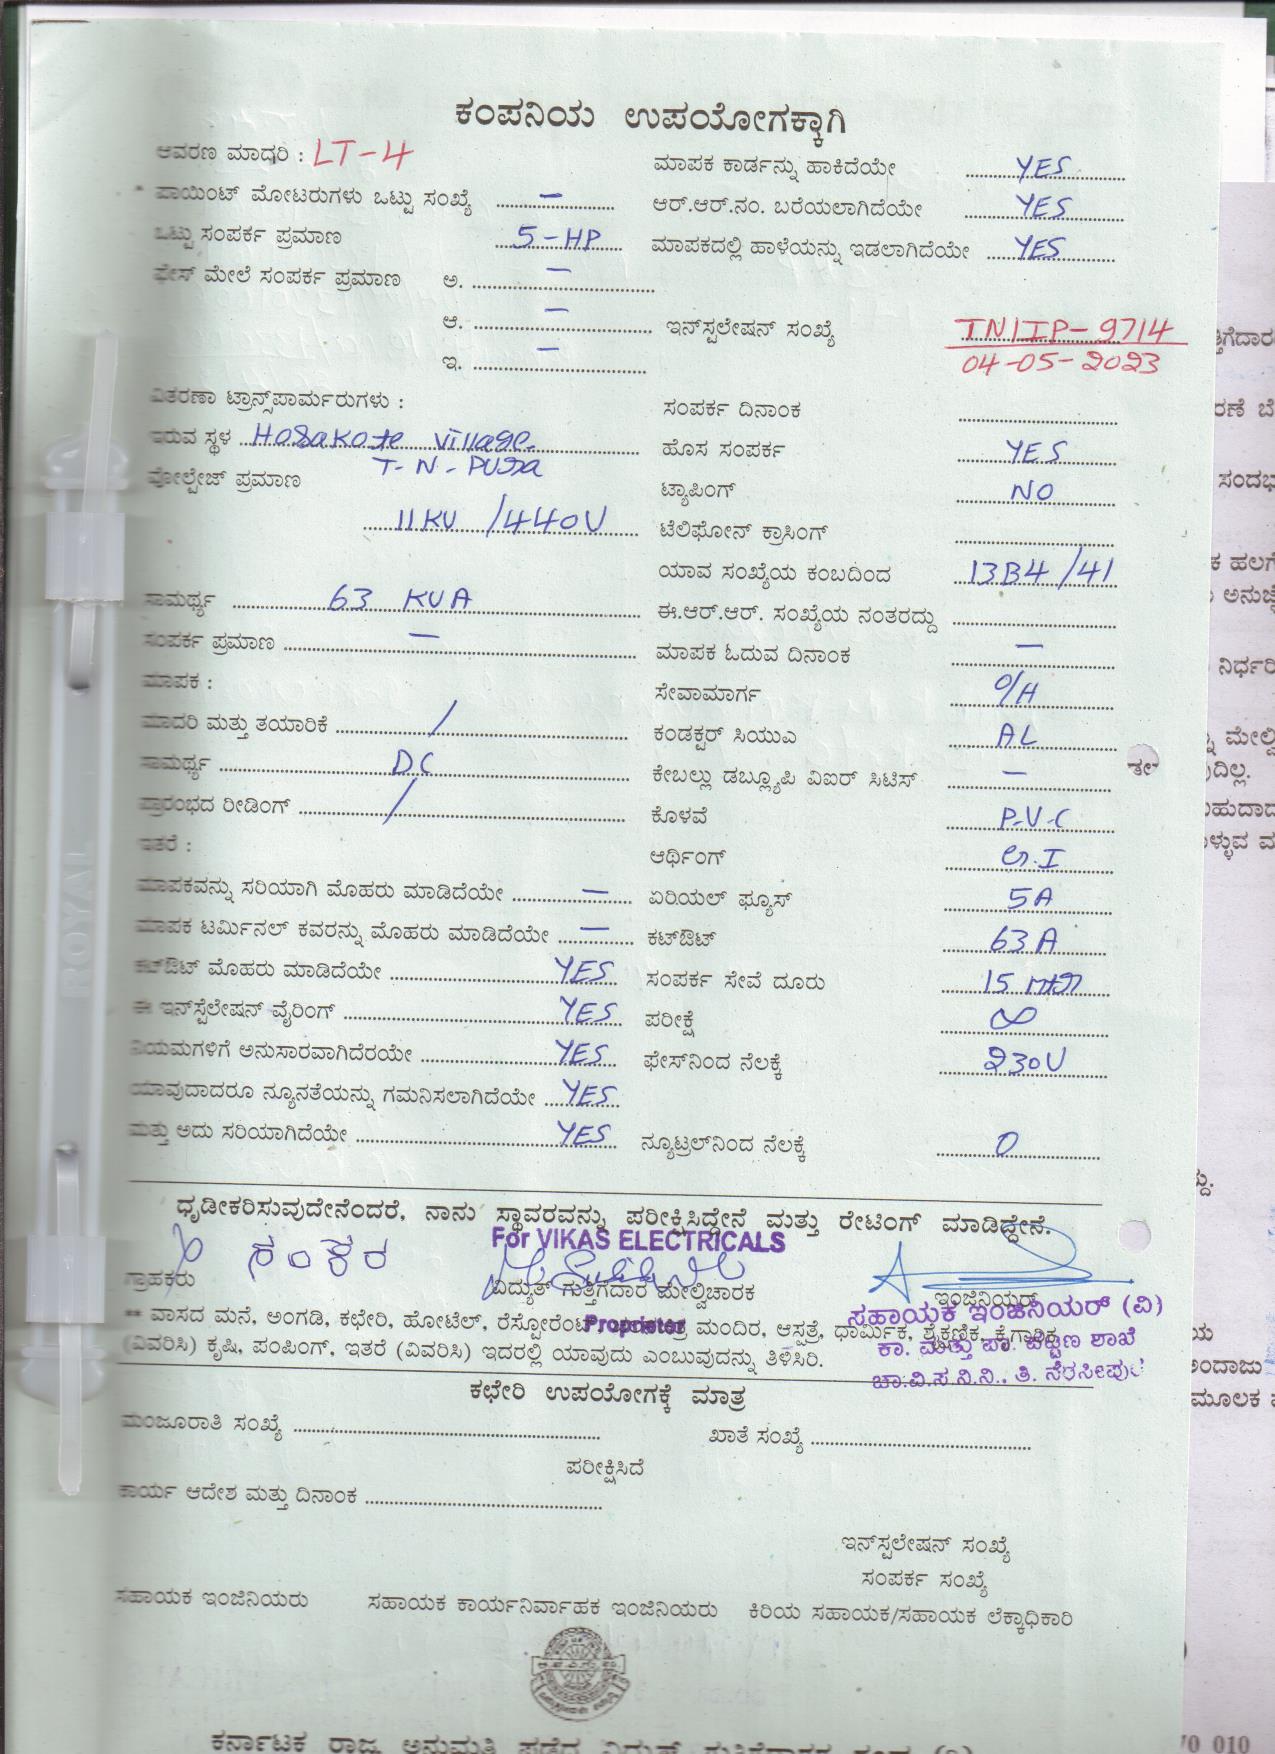 ಕಂಪನಿಯ ಉಪಯೋಗಕ್ಕಾಗಿ
ಆವರಣ ಮಾದರಿ : LT-4
ಮಾಪಕ ಕಾರ್ಡನ್ನು ಹಾಕಿದೆಯೇ YES
* ಪಾಯಿಂಟ್ ಮೋಟರುಗಳು ಒಟ್ಟು ಸಂಖ್ಯೆ –
ಆರ್.ಆರ್.ನಂ. ಬರೆಯಲಾಗಿದೆಯೇ YES
ಒಟ್ಟು ಸಂಪರ್ಕ ಪ್ರಮಾಣ 5-HP
ಮಾಪಕದಲ್ಲಿ ಹಾಳೆಯನ್ನು ಇಡಲಾಗಿದೆಯೇ YES
ಫೇಸ್ ಮೇಲೆ ಸಂಪರ್ಕ ಪ್ರಮಾಣ ಅ. –
ಆ. –
ಇನ್‌ಸ್ಪಲೇಷನ್ ಸಂಖ್ಯೆ TN/IP-9714
04-05-2023
ಇ. –
ವಿತರಣಾ ಟ್ರಾನ್ಸ್‌ಪಾರ್ಮರುಗಳು :
ಸಂಪರ್ಕ ದಿನಾಂಕ
ಇರುವ ಸ್ಥಳ Hosakote village.
T-N-PURA
ಹೊಸ ಸಂಪರ್ಕ YES
ವೋಲ್ಟೇಜ್ ಪ್ರಮಾಣ
11KV /440V
ಟ್ಯಾಪಿಂಗ್ NO
ಟೆಲಿಫೋನ್ ಕ್ರಾಸಿಂಗ್
ಯಾವ ಸಂಖ್ಯೆಯ ಕಂಬದಿಂದ 13B4/41
ಸಾಮರ್ಥ್ಯ 63 KVA
ಈ.ಆರ್.ಆರ್. ಸಂಖ್ಯೆಯ ನಂತರದ್ದು
ಸಂಪರ್ಕ ಪ್ರಮಾಣ –
ಮಾಪಕ ಓದುವ ದಿನಾಂಕ –
ಮಾಪಕ :
ಸೇವಾಮಾರ್ಗ O/H
ಮಾದರಿ ಮತ್ತು ತಯಾರಿಕೆ /
ಕಂಡಕ್ಟರ್ ಸಿಯುಎ AL
ಸಾಮರ್ಥ್ಯ DC
ಕೇಬಲ್ಲು ಡಬ್ಲ್ಯೂಪಿ ವಿಐರ್ ಸಿಟಿಸ್ –
ಪ್ರಾರಂಭದ ರೀಡಿಂಗ್ /
ಕೊಳವೆ P.V.C
ಇತರೆ :
ಆರ್ಥಿಂಗ್
ಮಾಪಕವನ್ನು ಸರಿಯಾಗಿ ಮೊಹರು ಮಾಡಿದೆಯೇ –
ಏರಿಯಲ್ ಫ್ಯೂಸ್ 5A
ಮಾಪಕ ಟರ್ಮಿನಲ್ ಕವರನ್ನು ಮೊಹರು ಮಾಡಿದೆಯೇ –
ಕಟ್‌ಔಟ್ 63A
ಕಟ್‌ಔಟ್ ಮೊಹರು ಮಾಡಿದೆಯೇ YES
ಸಂಪರ್ಕ ಸೇವೆ ದೂರು 15
ಈ ಇನ್‌ಸ್ಪೆಲೇಷನ್ ವೈರಿಂಗ್ YES
ಪರೀಕ್ಷೆ ∞
ನಿಯಮಗಳಿಗೆ ಅನುಸಾರವಾಗಿದೆರಯೇ YES
ಫೇಸ್‌ನಿಂದ ನೆಲಕ್ಕೆ 230V
ಯಾವುದಾದರೂ ನ್ಯೂನತೆಯನ್ನು ಗಮನಿಸಲಾಗಿದೆಯೇ YES
ಮತ್ತು ಅದು ಸರಿಯಾಗಿದೆಯೇ YES
ನ್ಯೂಟ್ರಲ್‌ನಿಂದ ನೆಲಕ್ಕೆ 0
ಧೃಡೀಕರಿಸುವುದೇನೆಂದರೆ, ನಾನು ಸ್ಥಾವರವನ್ನು ಪರೀಕ್ಷಿಸಿದ್ದೇನೆ ಮತ್ತು ರೇಟಿಂಗ್ ಮಾಡಿದ್ದೇನೆ.
For VIKAS ELECTRICALS
ಶಂಕರ
ಗ್ರಾಹಕರು ವಿದ್ಯುತ್ ಗುತ್ತಿಗೆದಾರ ಮೇಲ್ವಿಚಾರಕ ಇಂಜಿನಿಯರ್
ಸಹಾಯಕ ಇಂಜಿನಿಯರ್ (ವಿ)
** ವಾಸದ ಮನೆ, ಅಂಗಡಿ, ಕಛೇರಿ, ಹೋಟೆಲ್, ರೆಸ್ಟೋರೆಂಟ್, ಮಂದಿರ, ಆಸ್ಪತ್ರೆ, ಧಾರ್ಮಿಕ, ಶೈಕ್ಷಣಿಕ, ಕೈಗಾರಿಕ
Proprietor
ಕಾ. ಮತ್ತು ಪಾ. ಪಟ್ಟಣ ಶಾಖೆ
(ವಿವರಿಸಿ) ಕೃಷಿ, ಪಂಪಿಂಗ್, ಇತರೆ (ವಿವರಿಸಿ) ಇದರಲ್ಲಿ ಯಾವುದು ಎಂಬುವುದನ್ನು ತಿಳಿಸಿರಿ.
ಚಾ.ವಿ.ಸ.ನಿ.ನಿ., ತಿ. ನರಸೀಪುರ
ಕಛೇರಿ ಉಪಯೋಗಕ್ಕೆ ಮಾತ್ರ
ಮಂಜೂರಾತಿ ಸಂಖ್ಯೆ
ಖಾತೆ ಸಂಖ್ಯೆ
ಪರೀಕ್ಷಿಸಿದೆ
ಕಾರ್ಯ ಆದೇಶ ಮತ್ತು ದಿನಾಂಕ
ಇನ್‌ಸ್ಪಲೇಷನ್ ಸಂಖ್ಯೆ
ಸಂಪರ್ಕ ಸಂಖ್ಯೆ
ಸಹಾಯಕ ಇಂಜಿನಿಯರು ಸಹಾಯಕ ಕಾರ್ಯನಿರ್ವಾಹಕ ಇಂಜಿನಿಯರು ಕಿರಿಯ ಸಹಾಯಕ/ಸಹಾಯಕ ಲೆಕ್ಕಾಧಿಕಾರಿ
ಕರ್ನಾಟಕ ರಾಜ್ಯ ಅನುಮತಿ ಪಡೆದ ವಿದ್ಯುತ್ ಗುತ್ತಿಗೆದಾರರ
ROYAL